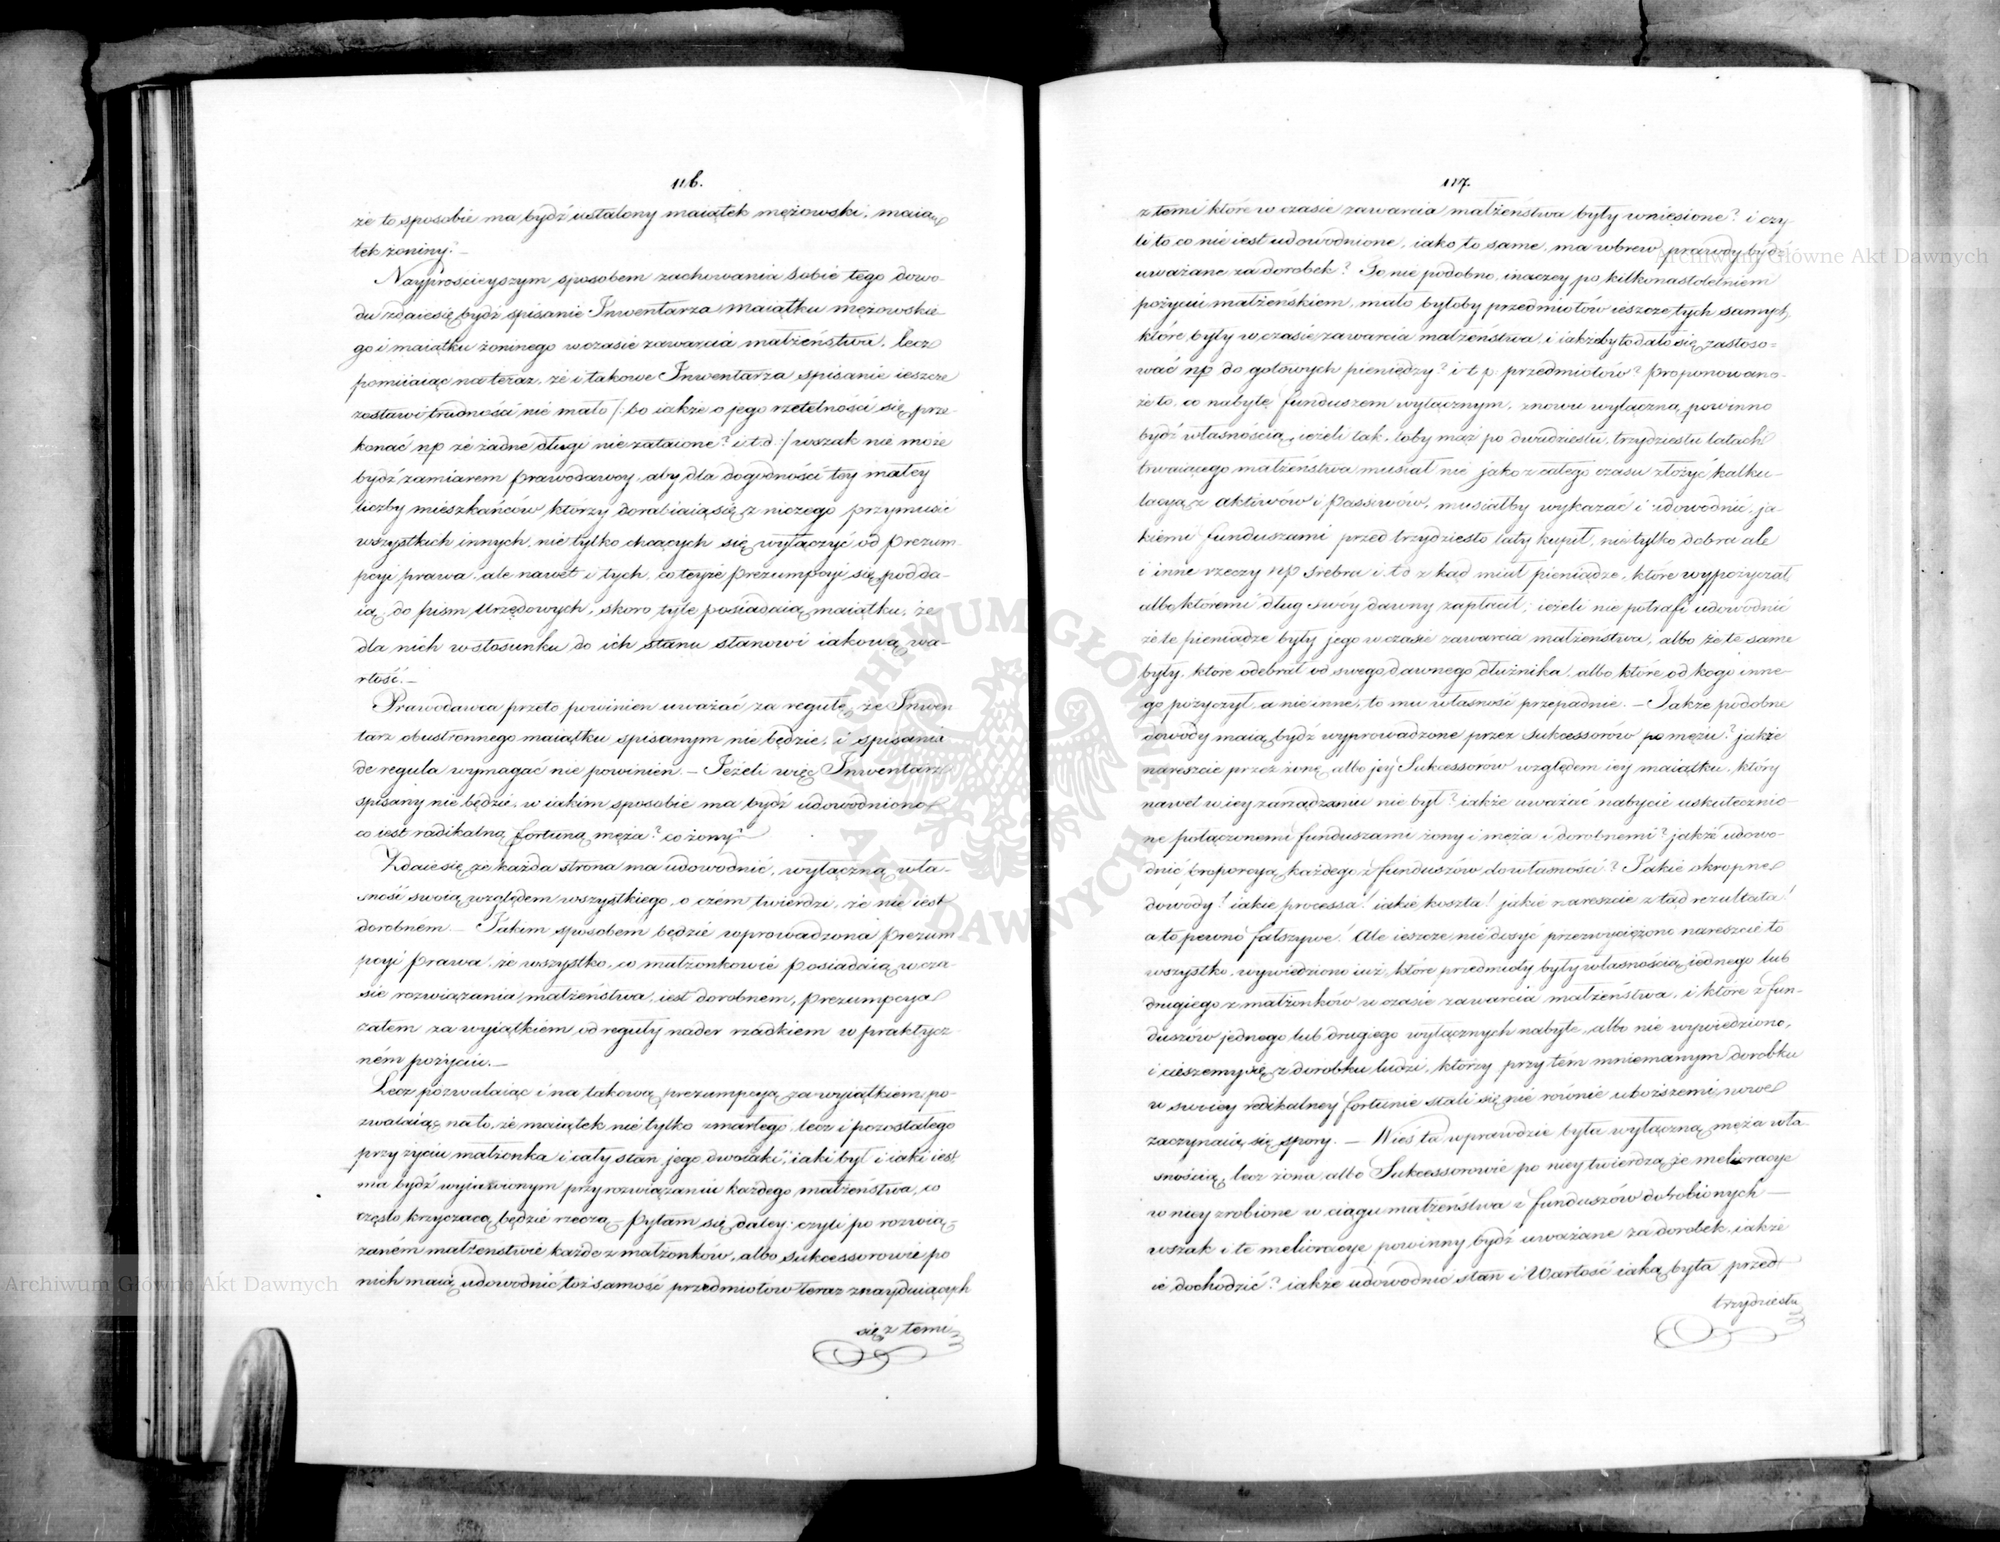 116.
że to sposobie ma bydź ustalony maiątek mężowski, maią
tek żoniny? —
Nayprościeyszym sposobem zachowania sobie tego dowo-
du zdaie się bydź spisanie Inwentarza maiątku mężowskie-
go i maiątku żoninego w czasie zawarcia małżeństwa, lecz
pomiiaiąc na teraz, że i takowe Inwentarza spisanie ieszcze
zostawi trudności nie mało /: bo iakże o jego rzetelności się prze-
konać np że żadne długi nie zataione? i.t.d :/ wszak nie może
bydź zamiarem prawodawcy, aby dla dogodności tey małey
liczby mieszkańców którzy dorabiaią się z niczego przymusić
wszystkich innych, nie tylko chcących się wyłączyć od prezum-
pcyi prawa, ale nawet i tych, co teyże prezumpcyi się podda-
ią, do pism Urzędowych, skoro tyle posiadaią maiątku, że
dla nich w stosunku do ich stanu stanowi iakową wa-
rtość. —
Prawodawca przeto powinien uważać za regułę, że Inwen
tarz obustronnego maiątku spisanym nie będzie, i spisania
de regula wymagać nie powinien. — Jeżeli więc Inwentarz
spisany nie będzie, w iakim sposobie ma bydź udowodniono
co iest radikalną fortuną męża? co żony?
Zdaie się, że każda strona ma udowodnić, wyłączną wła-
sność swoią względem wszystkiego, o czém twierdzi, że nie iest
dorobném. — Takim sposobem będzie wprowadzona prezum
pcyi prawa, że wszystko, co małżonkowie posiadaią w cza-
sie rozwiązania małżeństwa, iest dorobnem, prezumpcya
zatem za wyiątkiem od reguły nader rzadkiem w praktycz-
ném pożyciu. —
Lecz pozwalaiąc i na takową prezumpcyą za wyiątkiem, po-
zwalaiąc na to, że maiątek nie tylko zmarłego, lecz i pozostałego
przy życiu małżonka i cały stan jego dwoiaki, iaki był i iaki iest
ma bydź wyiawionym przy rozwiązaniu każdego małżeństwa, co
często krzyczącą będzie rzeczą, pytam się daley: czyli po rozwią
zaném małżeństwie każde z małżonków, albo Sukcessorowie po
nich maią udowodnić tożsamość przedmiotów teraz znayduiących
się z temi
117.
z temi które w czasie zawarcia małżeństwa były wniesione? i czy-
li to co nie iest udowodnione, iako to same, ma wbrew prawdy bydź
uważane za dorobek? To nie podobno, inaczey po kilkonastoletniem
pożyciu małżeńskiem, mało byłoby przedmiotów ieszcze tych samych,
które były w czasie zawarcia małżeństwa, i iakżeby to dało się zastoso-
wać np do gotowych pieniędzy? i t p. przedmiotów? proponowano-
że to, co nabyte funduszem wyłącznym, znowu wyłączną powinno
bydź własnością, ieżeli tak, toby mąż po dwudziestu, trzydziestu latach
trwaiącego małżeństwa musiał nie jako z całego czasu złożyć kalku-
lacyą z aktiwów i passiwów, musiałby wykazać i udowodnić, ja-
kiemi funduszami przed trzydziesto laty kupił, nie tylko dobra ale
i inne rzeczy np srebra i.t.d z kąd miał pieniądze, które wypożyczał,
albo któremi dług swóy dawny zapłacił; ieżeli nie potrafi udowodnić
że te pieniądze były jego w czasie zawarcia małżeństwa, albo że te same
były, które odebrał od swego dawnego dłużnika, albo które od kogo inne-
go pożyczył, a nie inne, to mu własność przepadnie. — Jakże podobne
dowody maią bydź wyprowadzone przez Sukcessorów po mężu? jakże
nareszcie przez żonę, albo jey Sukcessorów względem iey maiątku, który
nawet w iey zarządzaniu nie był? iakże uważać nabycie uskutecznio-
ne połączonemi funduszami żony i męża i dorobnemi? jakże udowo-
dnić proporcyą każdego z funduszów do własności? Jakie okropne
dowody! iakie processa! iakie koszta! jakie nareszcie z tąd rezultata!
a to pewno fałszywe! Ale ieszcze nie dosyć przezwyciężone nareszcie to
wszystko, wywiedziono iuż, które przedmioty były własnością iednego lub
drugiego z małżonków w czasie zawarcia małżeństwa, i które z fun-
duszów jednego lub drugiego wyłącznych nabyte, albo nie wywiedziono,
i cieszemy się z dorobku ludzi, którzy przy tém mniemanym dorobku
w swoiey redikalney fortunie stali się nie równie uboższemi; nowe
zaczynaią się spory. — Wieś ta wprawdzie była wyłączną męża wła-
snością, lecz żona albo Sukcessorowie po niey twierdzą, że melioracye
w niey zrobione w ciągu małżeństwa z funduszów dorobionych —
wszak i te melioracye powinny bydź uważane za dorobek, iakże
ie dochodzić? iakże udowodnić stan i Wartość iaką była przed
trzydziestu
Archiwum Główne Akt Dawnych
Archiwum Główne Akt Dawnych
ARCHIWUM GŁÓWNE AKT DAWNYCH